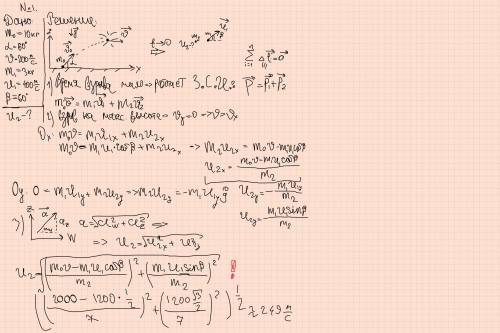 №1.
Дано:
Решение:
m₀=10кг
α=60°
v=200м/с
m₁=3кг
v₁=400м/с
β=60°
u₂-?
t→0
1) Время взрыва мало => работает З.С.И.:
m₀v⃗ = m₁u⃗₁ + m₂u⃗₂
P⃗ = P⃗₁+P⃗₂
2) взрыв на макс высоте => vy=0 => v=vx
Ox: m₀v = m₁u₁x + m₂u₂x
m₀v = m₁u₁·cosβ + m₂u₂x → m₂u₂x = m₀v - m₁u₁cosβ
u₂x = (m₀v - m₁u₁cosβ)/m₂
Oy: 0 = m₁u₁y + m₂u₂y => m₂u₂y = -m₁u₁y
u₂y = -m₁u₁y/m₂
u₂y = -m₁u₁sinβ/m₂
3) a = √(a²w + a²z)
=> u₂ = √(u²₂x + u²₂y)
u₂ = √(((m₀v - m₁u₁cosβ)/m₂)² + (m₁u₁sinβ/m₂)²)
(((2000 - 1200·1/2)/7)² + ((1200 √3/2)/7)²)^(1/2) ≈ 249 м/с